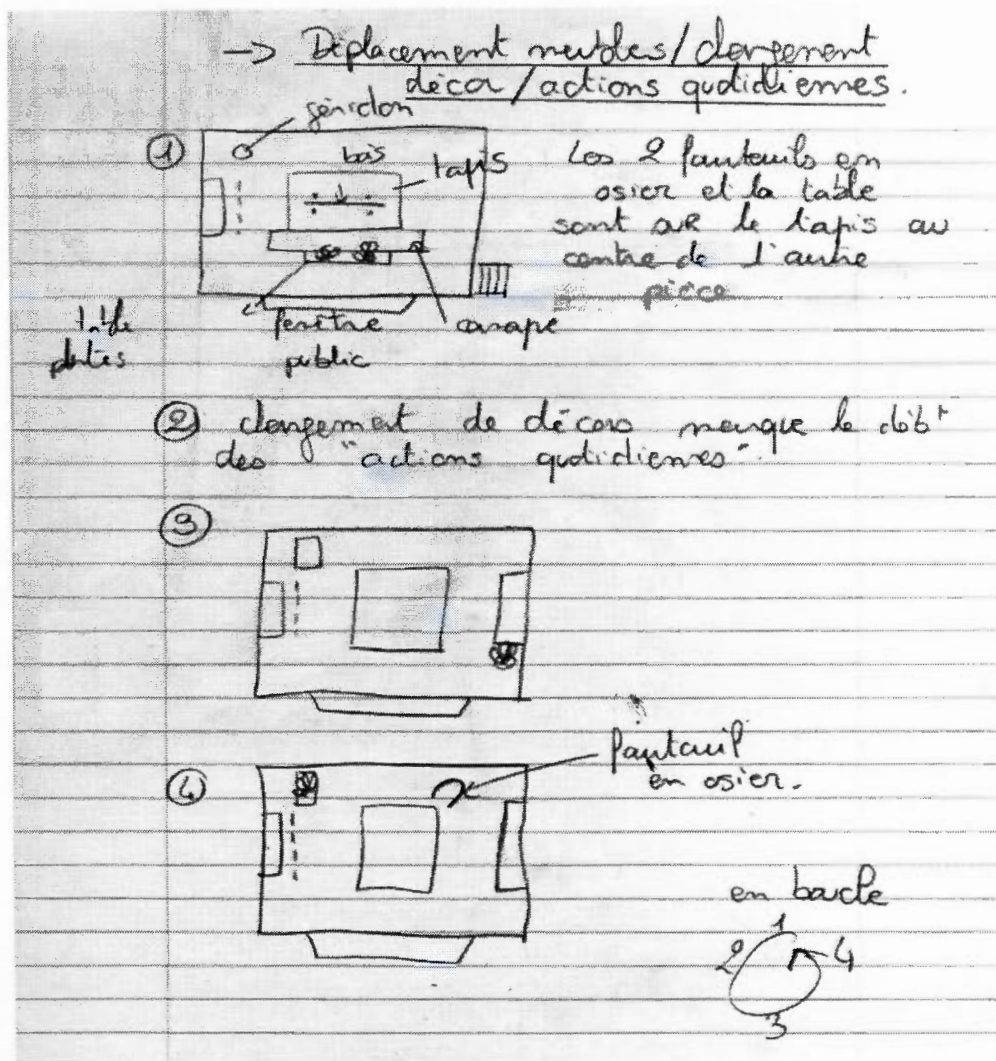 -> Déplacement meubles/changement
décor/actions quotidiennes.
guéridon
① bois tapis
Les 2 fauteuils en
osier et la table
sont sur le tapis au
centre de l'autre
pièce
fenêtre canapé
public
plantes
② changement de décors marque le déb^t
des "actions quotidiennes".
③
④
fauteuil
en osier.
en boucle
1
2 4
3